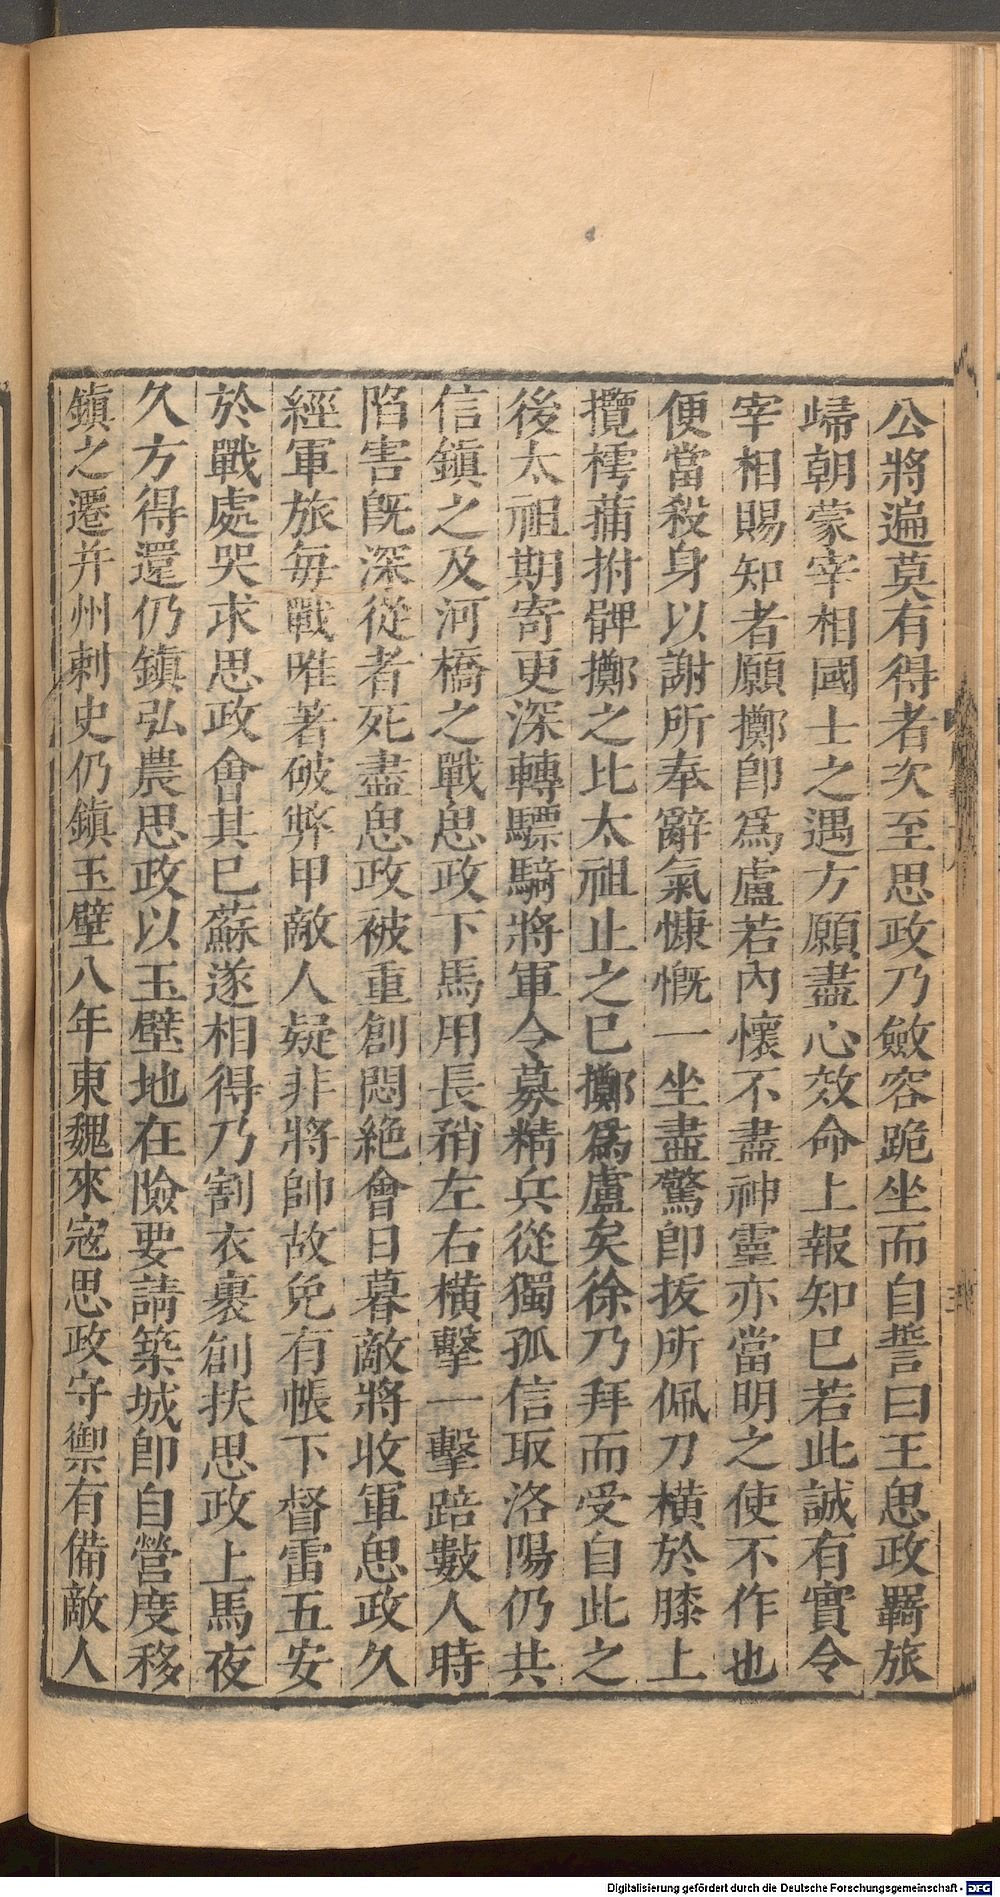 公將遍莫有得者次至思政乃斂容跪坐而自誓曰王思政羇旅
歸朝蒙宰相國士之遇方願盡心效命上報知巳若此誠有實令
宰相賜知者願擲卽爲盧若內懷不盡神靈亦當明之使不作也
便當殺身以謝所奉辭氣慷慨一坐盡驚卽拔所佩刀橫於膝上
攬樗蒱拊髀擲之比太祖止之已擲爲盧矣徐乃拜而受自此之
後太祖期寄更深轉驃騎將軍令募精兵從獨孤信取洛陽仍共
信鎮之及河橋之戰思政下馬用長矟左右橫擊一擊踣數人時
陷害旣深從者死盡思政被重創悶絶會日暮敵將收軍思政久
經軍旅每戰唯著破弊甲敵人疑非將帥故免有帳下督雷五安
於戰處哭求思政會其巳蘇遂相得乃割衣裹創扶思政上馬夜
久方得還仍鎮弘農思政以玉壁地在險要請築城卽自營度移
鎮之遷并州刺史仍鎮玉壁八年東魏來寇思政守禦有備敵人
Digitalisierung gefördert durch die Deutsche Forschungsgemeinschaft - DFG